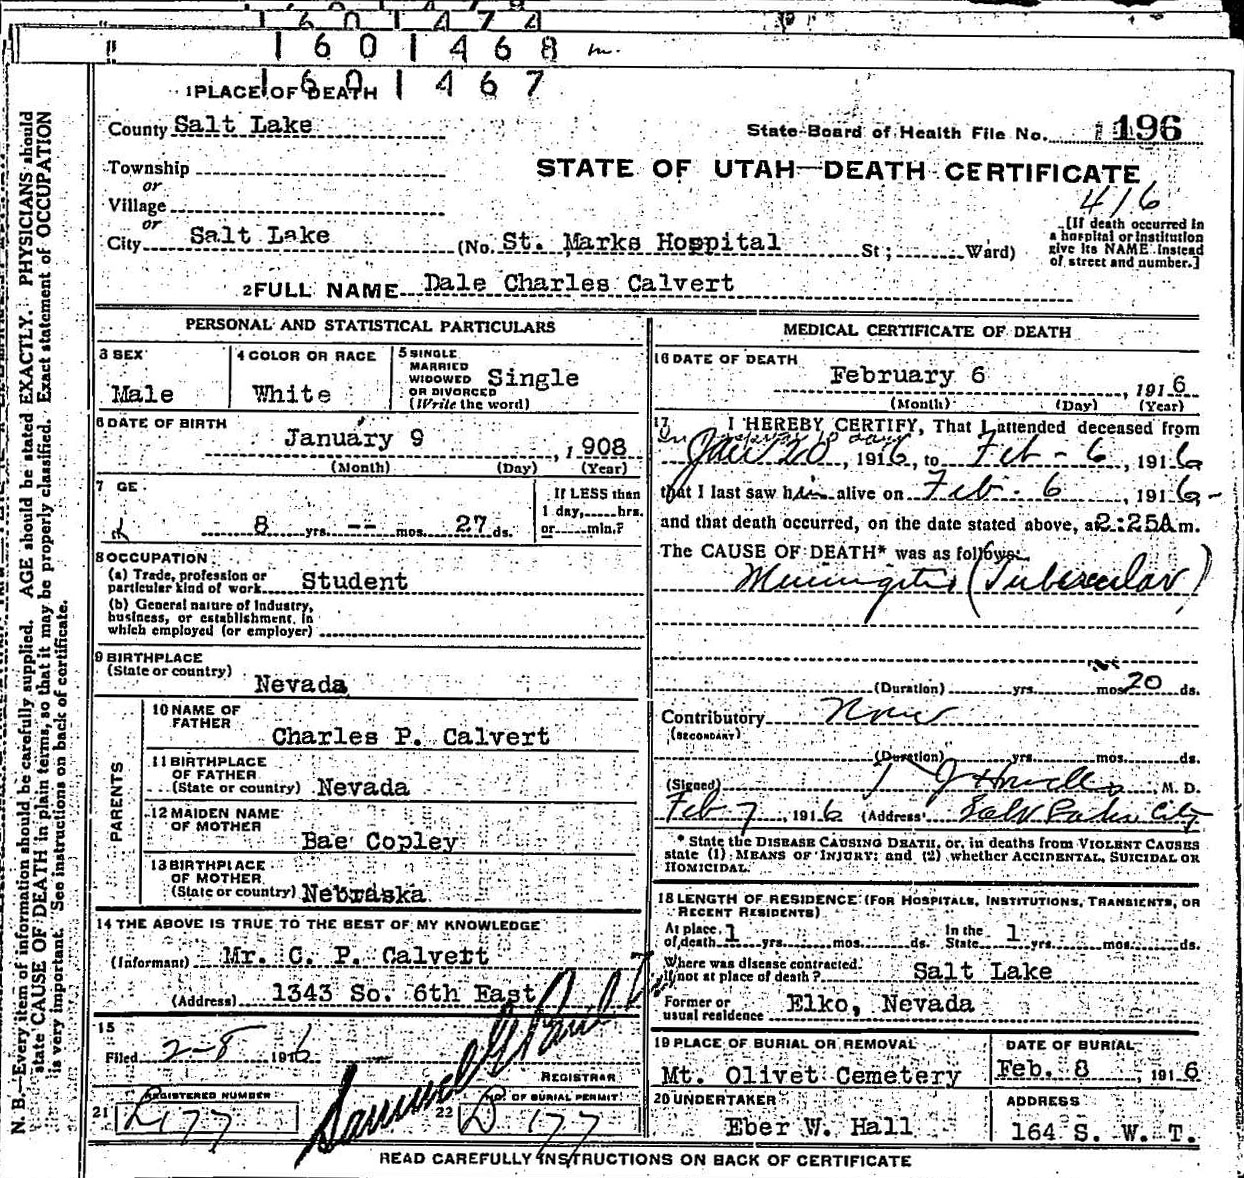 1601474
1601468
1601467
1 PLACE OF DEATH
County Salt Lake
State Board of Health File No. 196
Township
or
Village
or
City Salt Lake
STATE OF UTAH—DEATH CERTIFICATE
416
(No. St. Marks Hospital St; Ward)
[If death occurred in
a hospital or institution
give its NAME instead
of street and number.]
2 FULL NAME Dale Charles Calvert
PERSONAL AND STATISTICAL PARTICULARS
3 SEX
Male
4 COLOR OR RACE
White
5 SINGLE
MARRIED
WIDOWED
OR DIVORCED
(Write the word)
Single
6 DATE OF BIRTH
January 9, 1908
(Month) (Day) (Year)
7 GE
8 yrs. -- mos. 27 ds.
If LESS than
1 day, hrs.
or min.?
8 OCCUPATION
(a) Trade, profession or
particular kind of work Student
(b) General nature of industry,
business, or establishment in
which employed (or employer)
9 BIRTHPLACE
(State or country)
Nevada
PARENTS
10 NAME OF
FATHER
Charles P. Calvert
11 BIRTHPLACE
OF FATHER
(State or country) Nevada
12 MAIDEN NAME
OF MOTHER
Bae Copley
13 BIRTHPLACE
OF MOTHER
(State or country) Nebraska
14 THE ABOVE IS TRUE TO THE BEST OF MY KNOWLEDGE
(Informant) Mr. C. P. Calvert
(Address) 1343 So. 6th East
15
Filed 2-8 1916
REGISTRAR
REGISTERED NUMBER
21 D 177
NO. OF BURIAL PERMIT
22 D 177
MEDICAL CERTIFICATE OF DEATH
16 DATE OF DEATH
February 6, 1916
(Month) (Day) (Year)
17 I HEREBY CERTIFY, That I attended deceased from
Jan 20, 1916, to Feb - 6, 1916
that I last saw him alive on Feb. 6, 1916-
and that death occurred, on the date stated above, at 2:25A m.
The CAUSE OF DEATH* was as follows:
Meningitis (Tubercular)
(Duration) yrs. mos. 20 ds.
Contributory None
(SECONDARY)
(Duration) yrs. mos. ds.
(Signed) T J Howells, M. D.
Feb 7, 1916 (Address) Salt Lake City
* State the DISEASE CAUSING DEATH, or, in deaths from VIOLENT CAUSES
state (1) MEANS OF INJURY; and (2) whether ACCIDENTAL, SUICIDAL OR
HOMICIDAL.
18 LENGTH OF RESIDENCE (FOR HOSPITALS, INSTITUTIONS, TRANSIENTS, OR
RECENT RESIDENTS)
At place
of death 1 yrs. mos. ds. In the State 1 yrs. mos. ds.
Where was disease contracted
if not at place of death? Salt Lake
Former or
usual residence Elko, Nevada
19 PLACE OF BURIAL OR REMOVAL
Mt. Olivet Cemetery
DATE OF BURIAL
Feb. 8, 1916
20 UNDERTAKER
Eber W. Hall
ADDRESS
164 S. W. T.
READ CAREFULLY INSTRUCTIONS ON BACK OF CERTIFICATE
N. B.—Every item of information should be carefully supplied. AGE should be stated EXACTLY. PHYSICIANS should
state CAUSE OF DEATH in plain terms, so that it may be properly classified. Exact statement of OCCUPATION
is very important. See instructions on back of certificate.